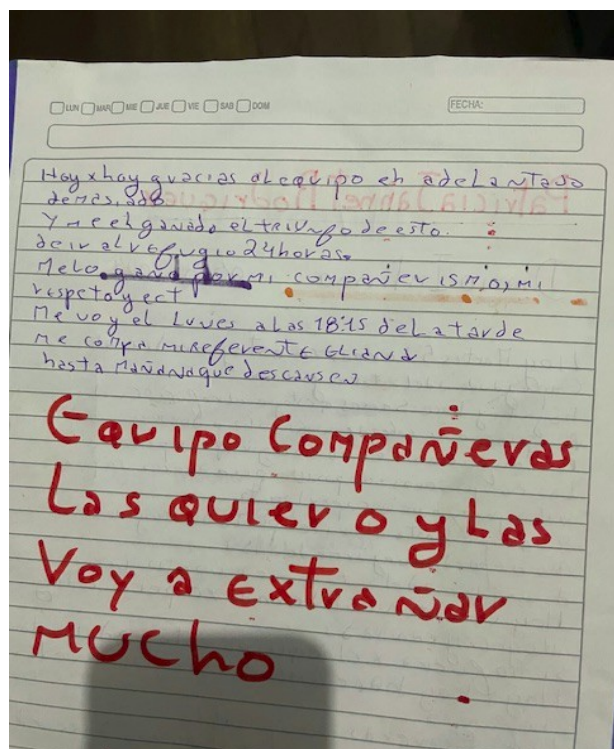 LUN MAR MIE JUE VIE SAB DOM FECHA:
Hoy x hoy gracias al equipo eh adelantado
demasiado
Y me el ganado el triunfo de esto.
de ir al refugio 24 horas.
Melo gane por mi compañerismo, mi
respeto y ect
Me voy el Lunes a las 18:15 de la tarde
me compa mi referente Eliana
hasta mañana que descansen
Equipo Compañeras
Las quiero y Las
Voy a Extrañar
Mucho